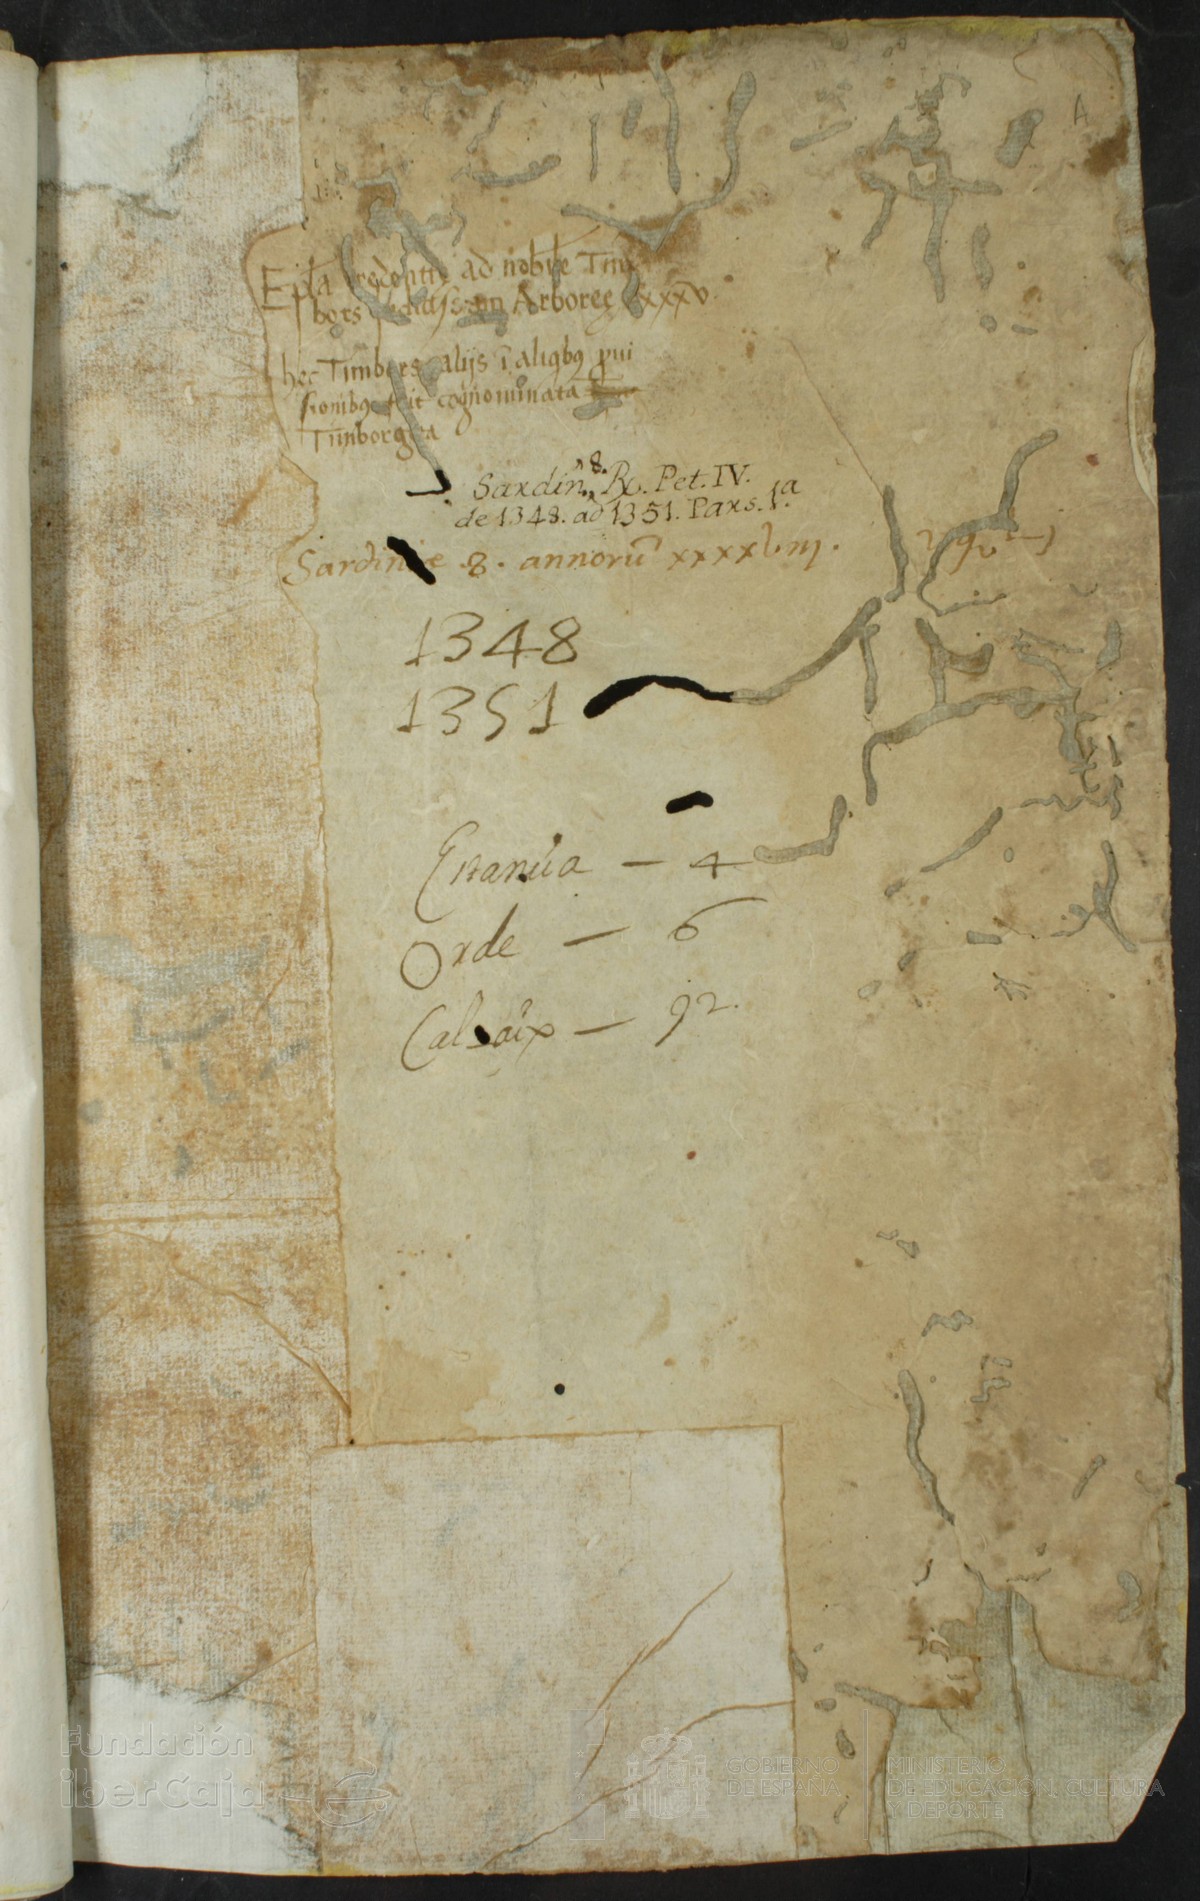 A
Ep̄la ad nobl̄e Tim
bors Arboree xxxv
hec Timbors alijs ī aliqbꝫ ꝓui
sionibꝫ fuit cognominata
Timborgeta
8.
Sardin. Rx. Pet. IV.
de 1348. ad 1351. Pars. 1ª
Sardinie .8. annoru xxxxlviij.
1348
1351
Estanteria — 4
Orde — 6
Calaix — 92.
Fundación
iberCaja
GOBIERNO
DE ESPAÑA
MINISTERIO
DE EDUCACIÓN, CULTURA
Y DEPORTE